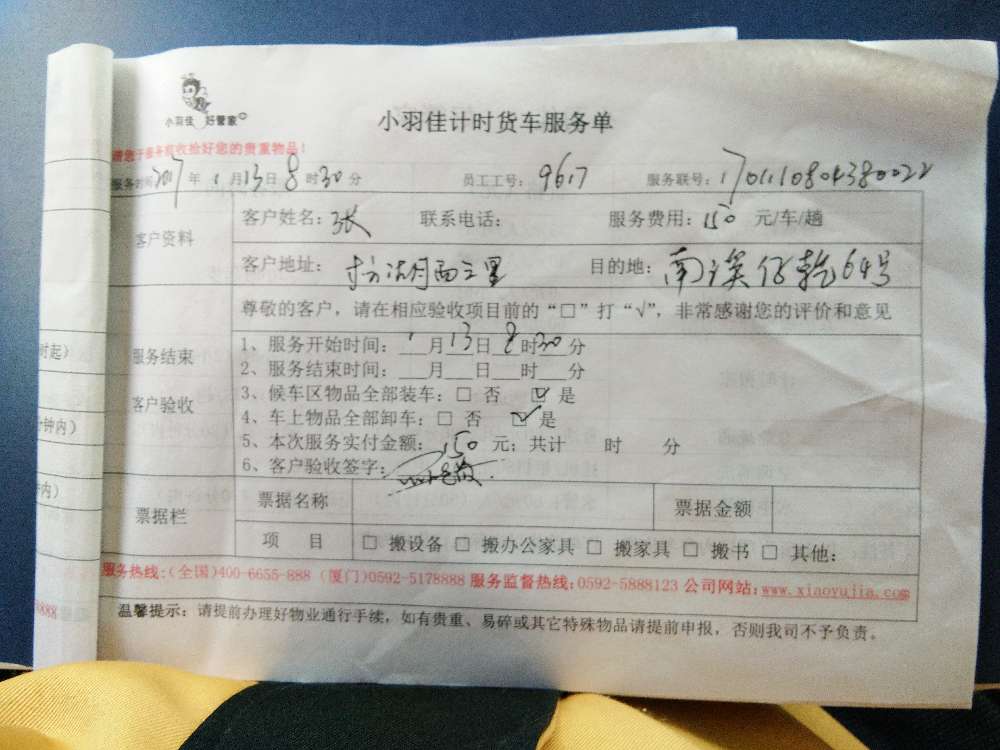 小羽佳 好管家
小羽佳计时货车服务单
请您于服务验收捡好您的贵重物品!
服务时间2017年1月13日8时30分 员工工号: 9617 服务联号: 1701110804380022
客户资料
客户姓名: 张 联系电话: 服务费用: 150 元/车/趟
客户地址: 湖西三里 目的地: 南溪仔乾64号
尊敬的客户,请在相应验收项目前的“□”打“√”,非常感谢您的评价和意见
时起)
服务结束
客户验收
1、服务开始时间: 1月13日8时30分
2、服务结束时间:___月___日___时___分
3、候车区物品全部装车: □ 否 ☑ 是
4、车上物品全部卸车: □ 否 ☑ 是
钟内)
5、本次服务实付金额: 150 元; 共计 时 分
6、客户验收签字:
内)
票据栏
票据名称 票据金额
项 目 □ 搬设备 □ 搬办公家具 □ 搬家具 □ 搬书 □ 其他:
服务热线:(全国)400-6655-888 (厦门)0592-5178888 服务监督热线:0592-5888123 公司网站:www.xiaoyujia.com
8888
温馨提示: 请提前办理好物业通行手续, 如有贵重、易碎或其它特殊物品请提前申报, 否则我司不予负责。